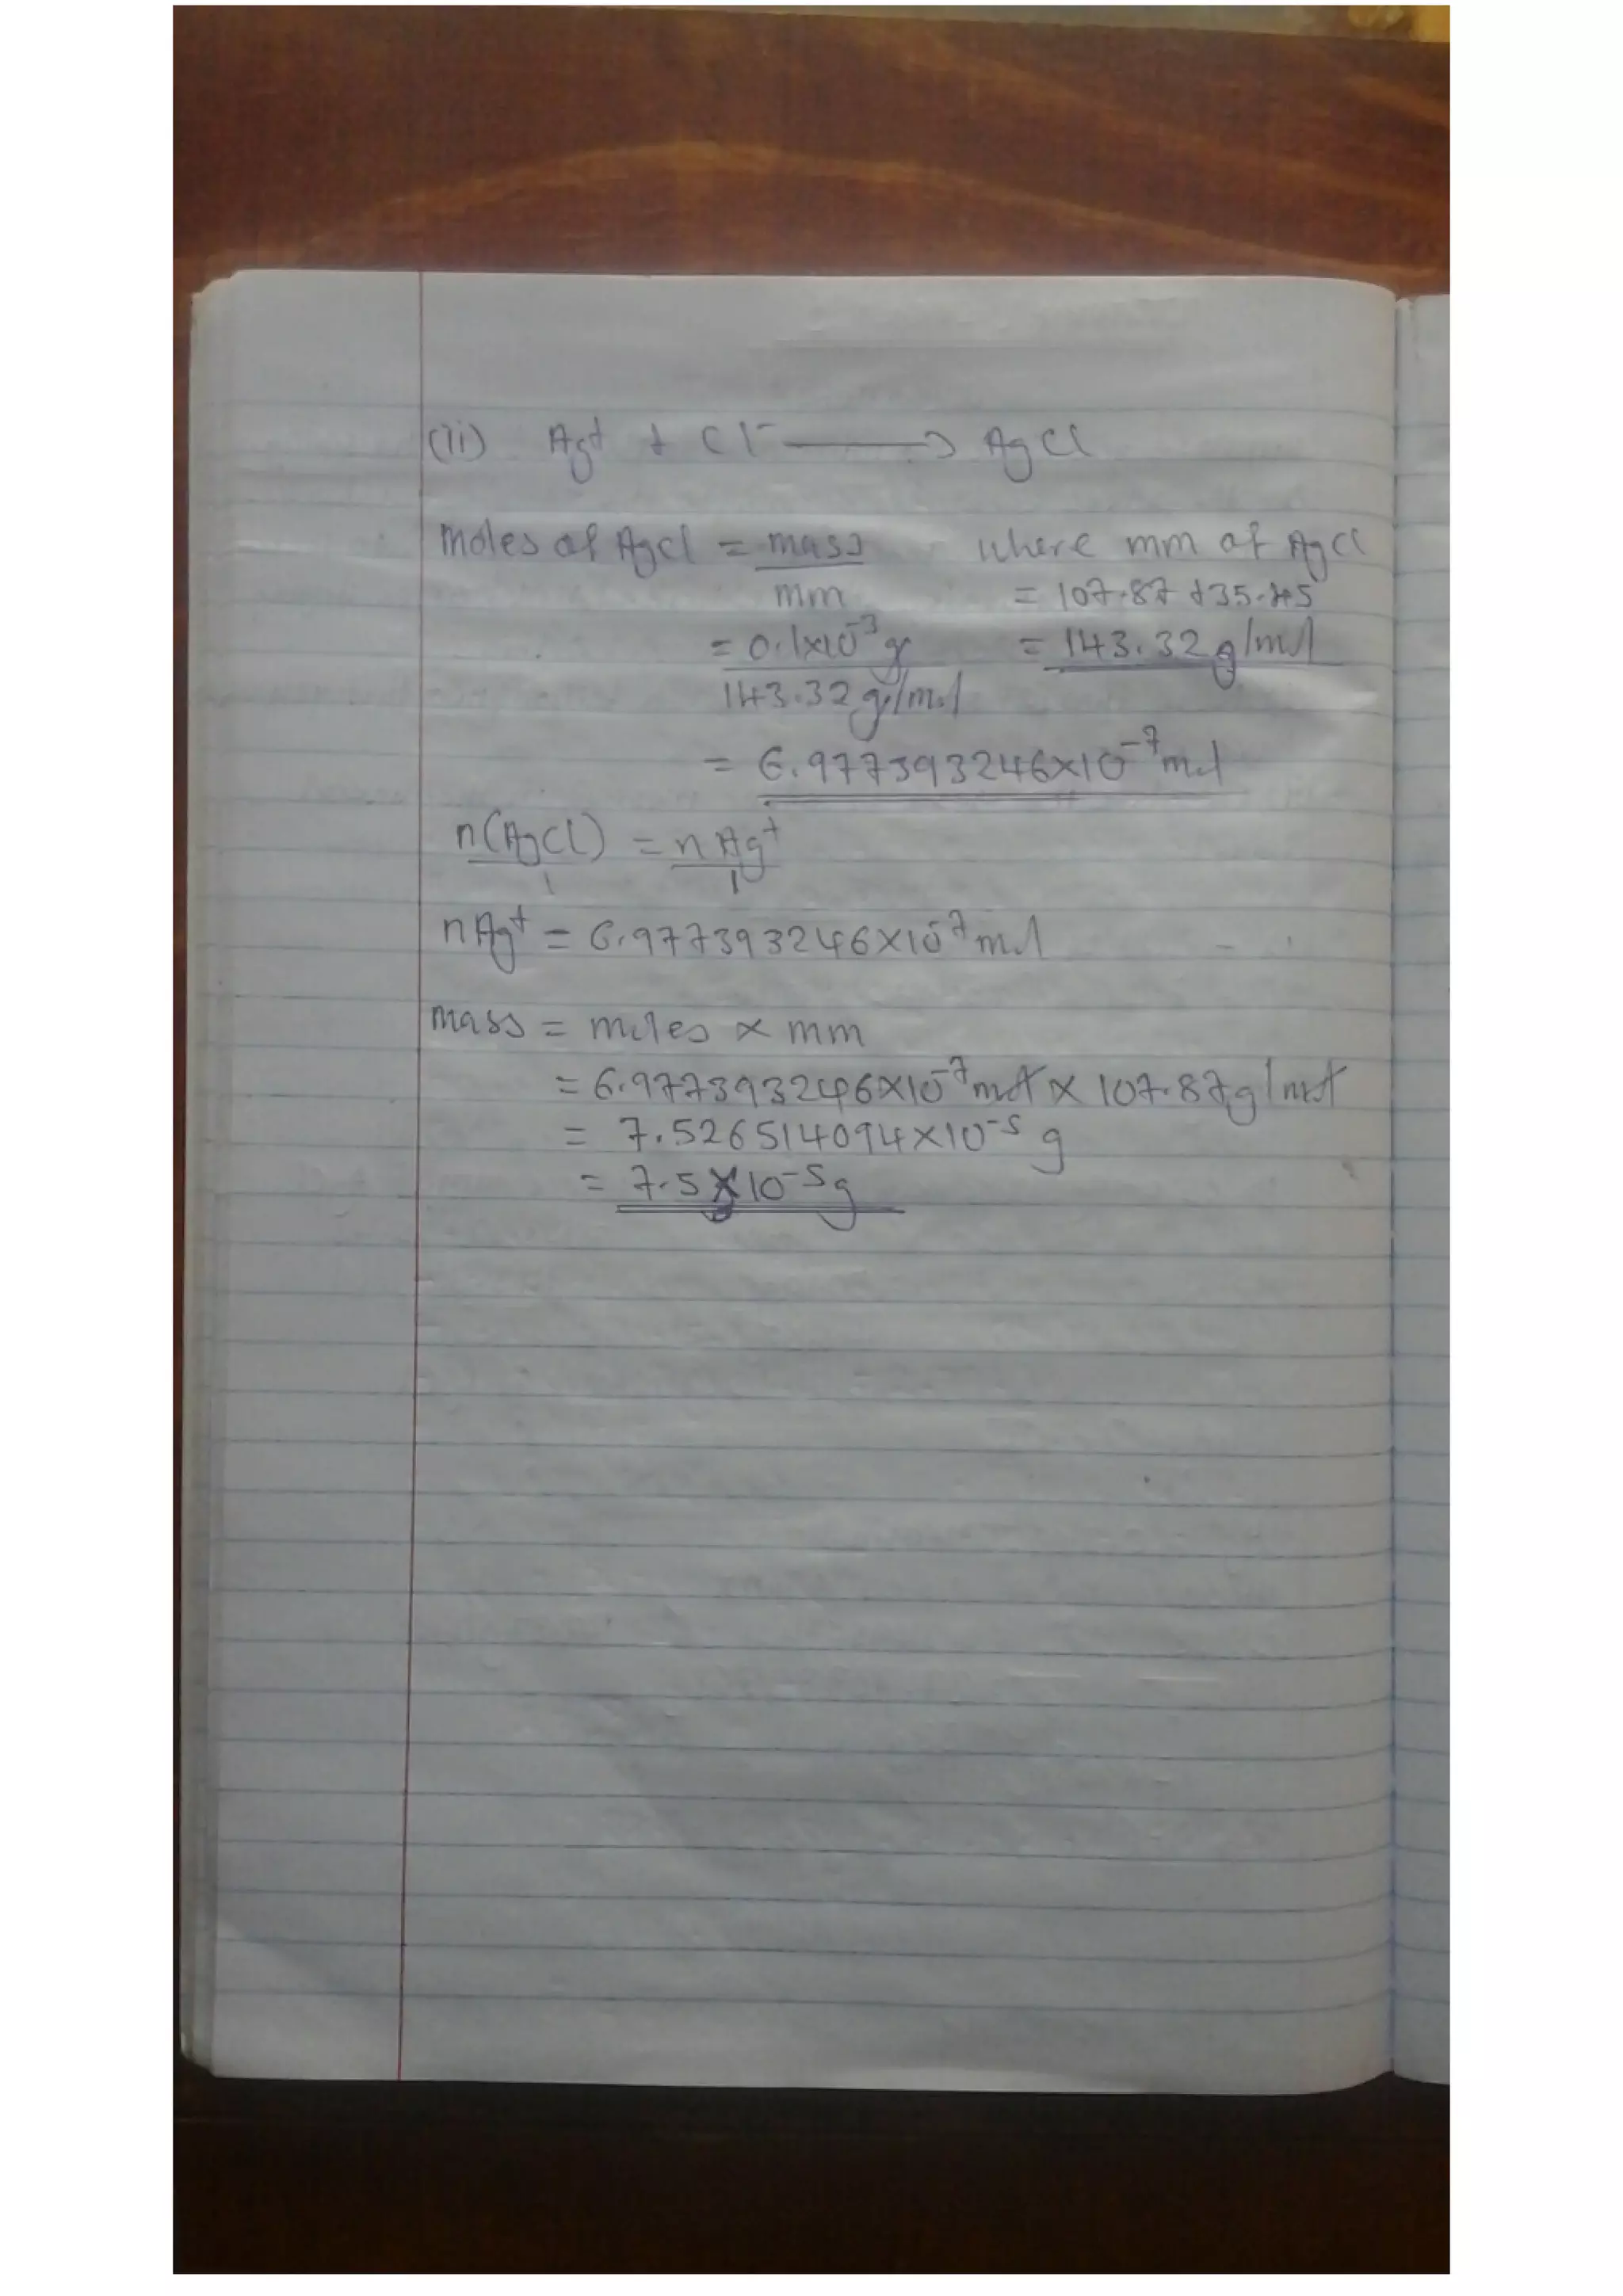 (ii) Ag⁺ + Cl⁻ ⟶ AgCl
moles of AgCl = mass/mm where mm of AgCl
= 107.87 + 35.45
= 0.1×10⁻³ g / 143.32 g/mol = 143.32 g/mol
= 6.977393246×10⁻⁷ mol
n(AgCl)/1 = nAg⁺/1
nAg⁺ = 6.977393246×10⁻⁷ mol
mass = moles × mm
= 6.977393246×10⁻⁷ mol × 107.87 g/mol
= 7.526514094×10⁻⁵ g
= 7.5×10⁻⁵ g